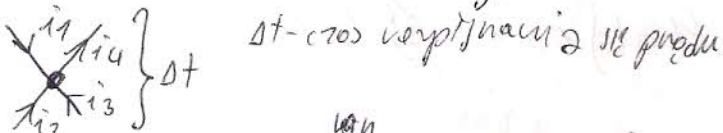 i1
i4
Δt
i3
i2
Δt - czas rozpływania się prądu